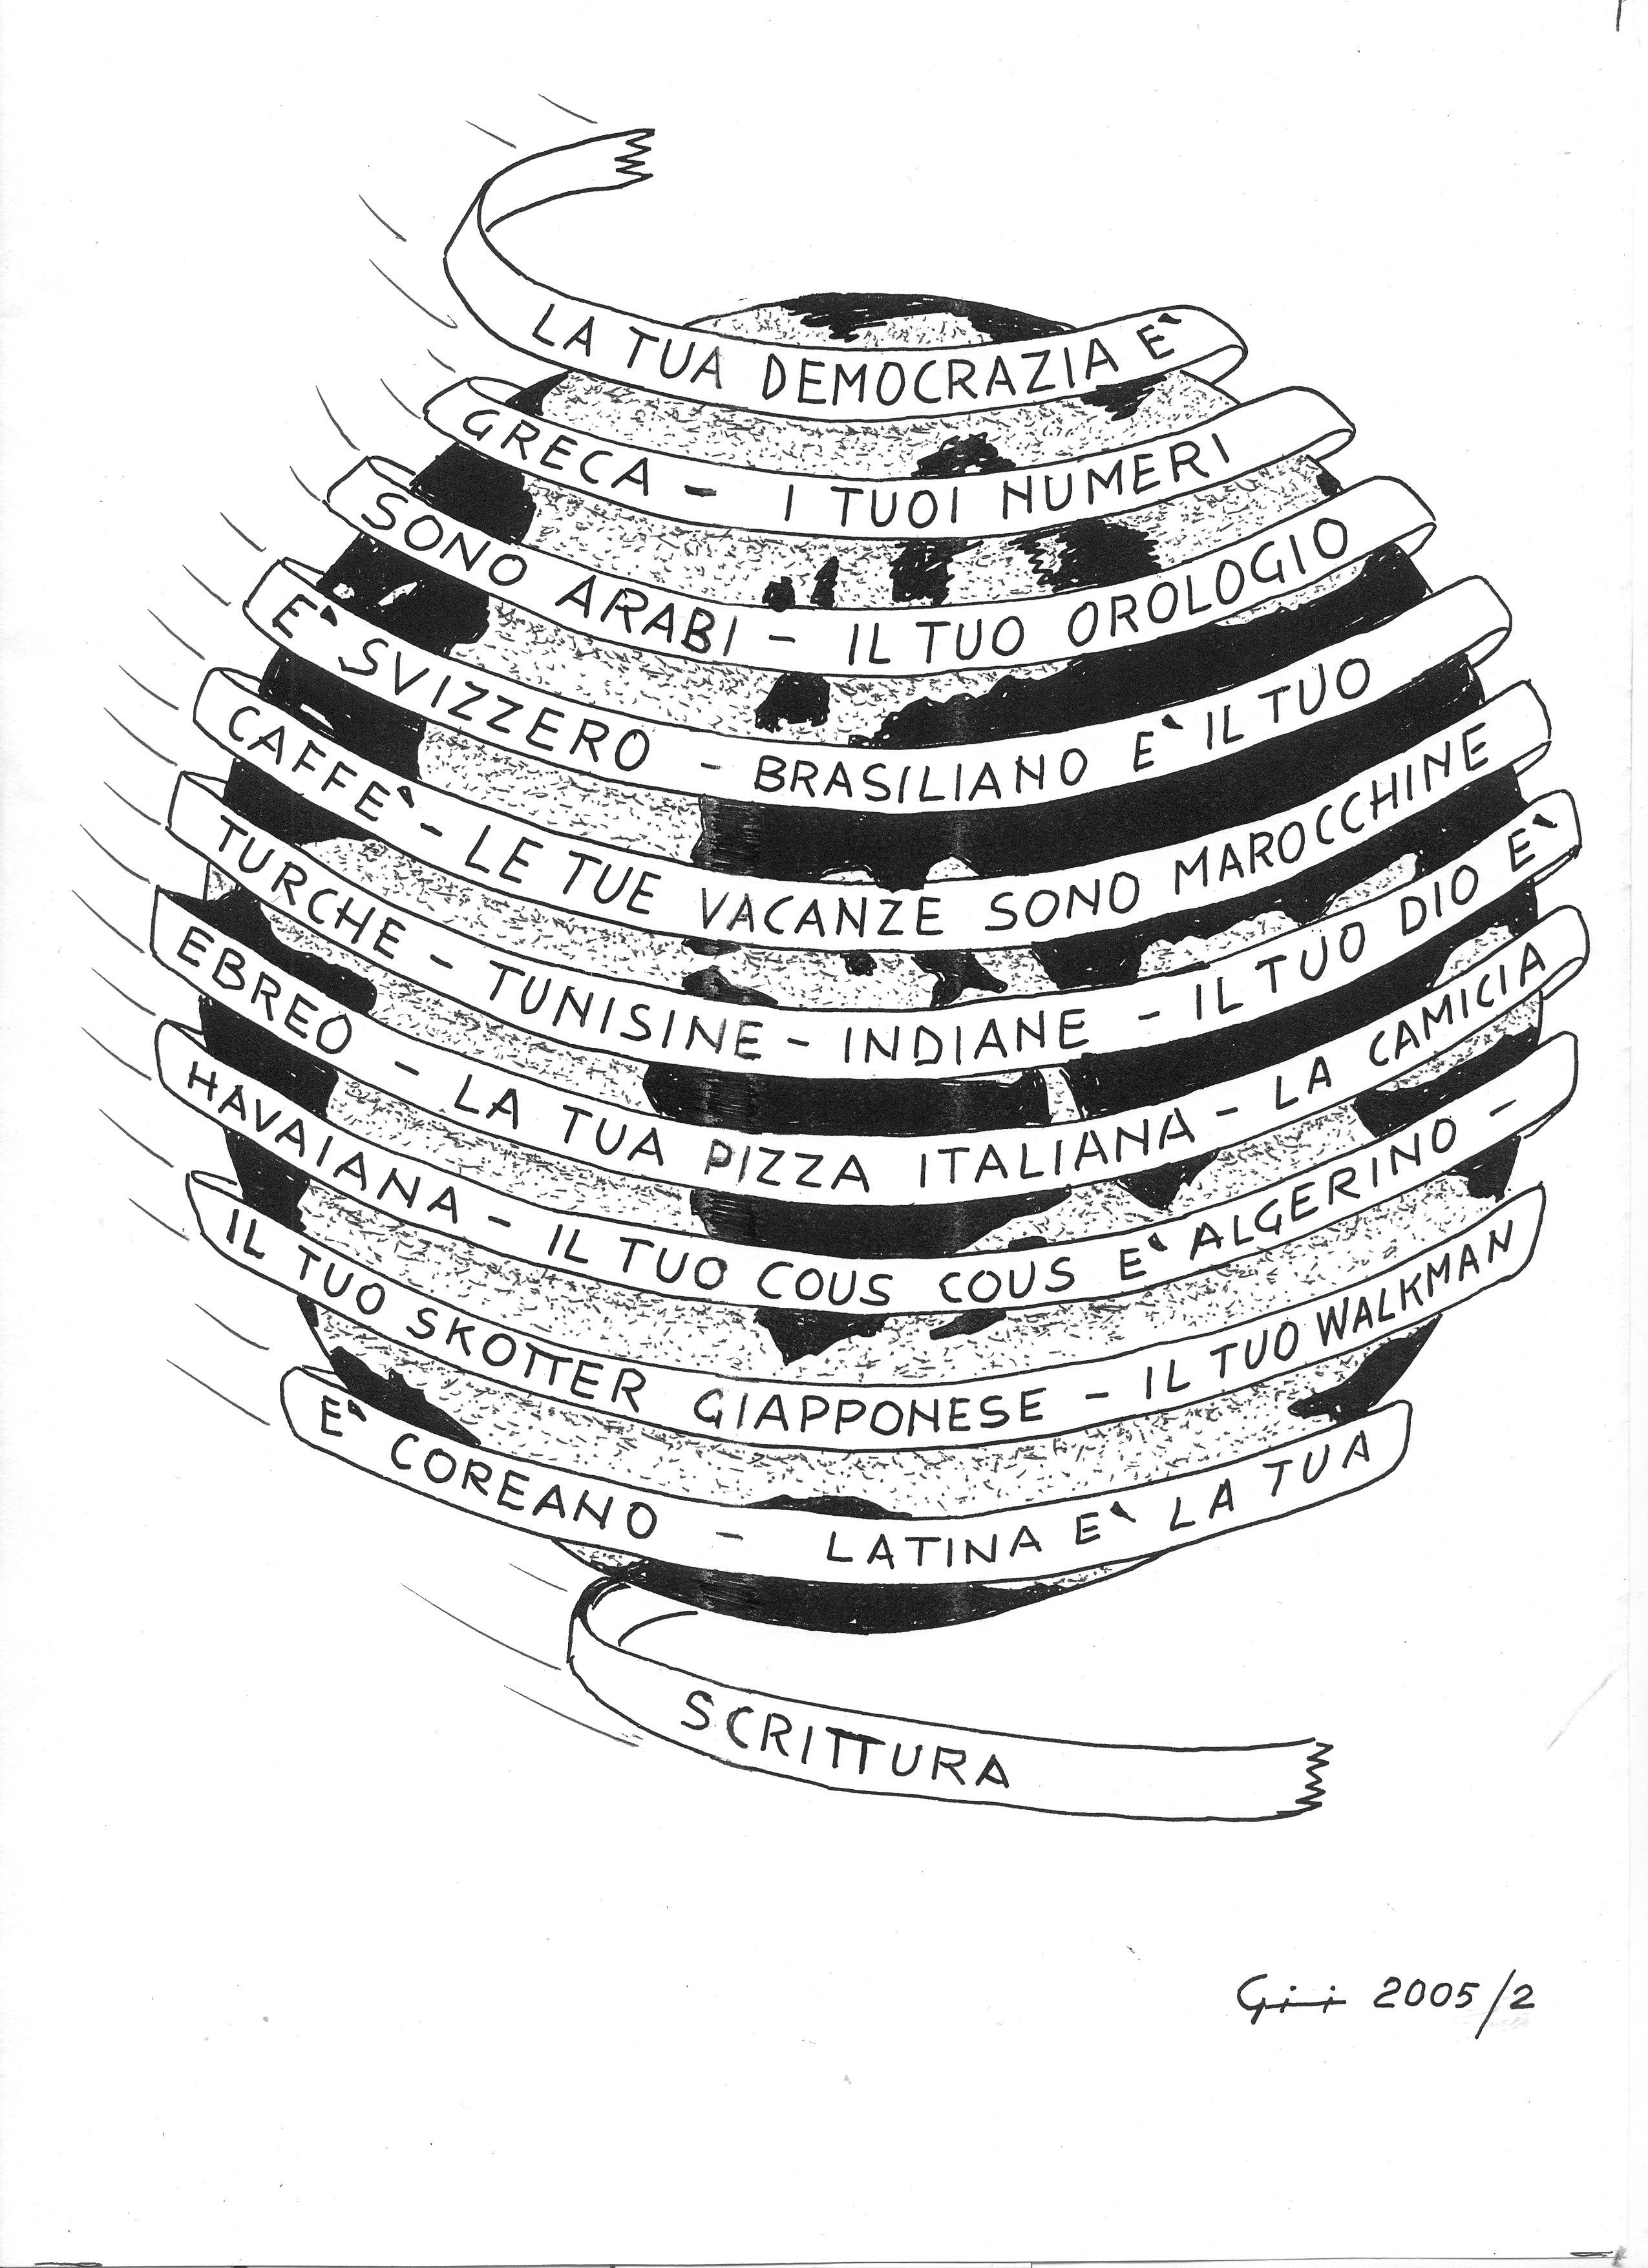 LA TUA DEMOCRAZIA E'
GRECA - I TUOI NUMERI
SONO ARABI - IL TUO OROLOGIO
E' SVIZZERO - BRASILIANO E' IL TUO
CAFFE' - LE TUE VACANZE SONO MAROCCHINE
TURCHE - TUNISINE - INDIANE - IL TUO DIO E'
EBREO - LA TUA PIZZA ITALIANA - LA CAMICIA
HAVAIANA - IL TUO COUS COUS E' ALGERINO -
IL TUO SKOTTER GIAPPONESE - IL TUO WALKMAN
E' COREANO - LATINA E' LA TUA
SCRITTURA
2005/2